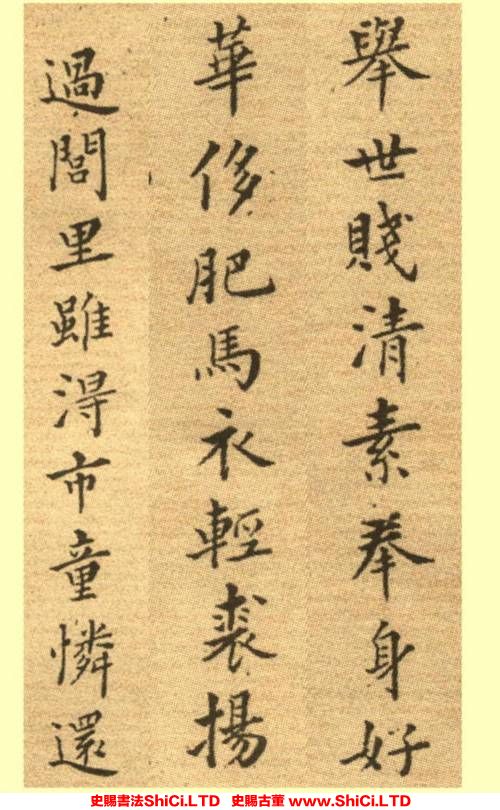 舉世賤清素奉身好
華侈肥馬衣輕裘揚
過閭里雖淂市童憐還
史賜書法ShiCi.LTD 史賜古董 www.ShiCi.LTD